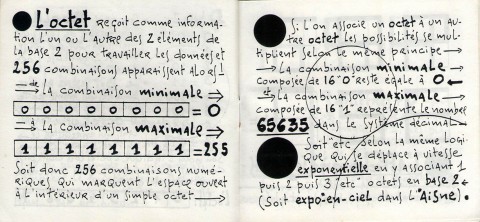 L'octet reçoit comme informa-
tion l'un ou l'autre des 2 éléments
de la base 2 pour travailler les données et
256 combinaisons apparaissent Alors!
de La combinaison minimale →
0 0 0 0 0 0 0 0 = 0
à La combinaison maximale →
1 1 1 1 1 1 1 1 = 255
Soit donc 256 combinaisons numé-
riques qui marquent l'espace ouvert
à l'intérieur d'un simple octet →
Si l'on associe un octet à un au-
tre octet les possibilités se mul-
tiplient selon le même principe →
→ La combinaison minimale →
composée de 16 "0" reste égale à 0 ←
et La combinaison maximale →
composée de 16 "1" représente le nombre
65635 dans le système décimal —
Soit "etc" selon la même logi-
que qui se déplace à vitesse
exponentielle en y associant 1
puis 2 puis 3 /etc" octets en base 2 ←
(Soit expo-en-ciel dans l'Aisne).